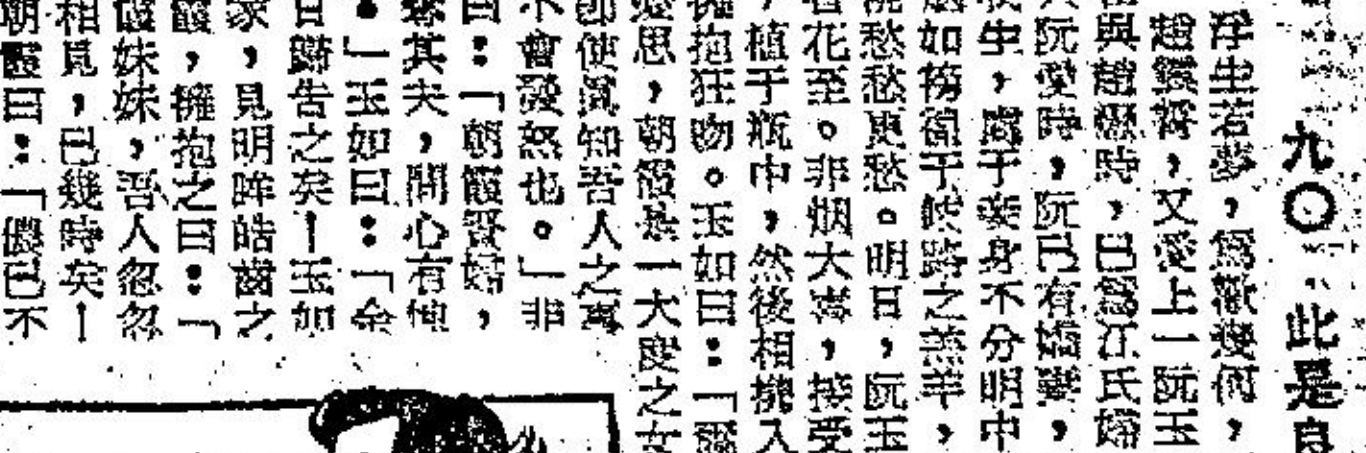 九〇‧此是良
浮生若夢，為歡幾何，
趙觀賢，又愛上一阮玉
與趙戀時，已為江氏婦
阮愛時，阮已有嬌妻，
生，處于妾身不分明中
如徬徨于歧路之羔羊，
愁愁更愁。明日，阮玉
花至。非烟大喜，接受
，植于瓶中，然後相擁入
擁抱狂吻。玉如曰：「愛
思，朝霞是一大度之女
即使聞知吾人之事
不會發怒也。」非
曰：「朝霞賢婦，
其夫，問心有愧
。」玉如曰：「余
日歸告之矣！玉如
家，見明眸皓齒之
霞，擁抱之曰：「
霞妹妹，吾人忽忽
相見，已幾時矣！
朝霞曰：「儂已不